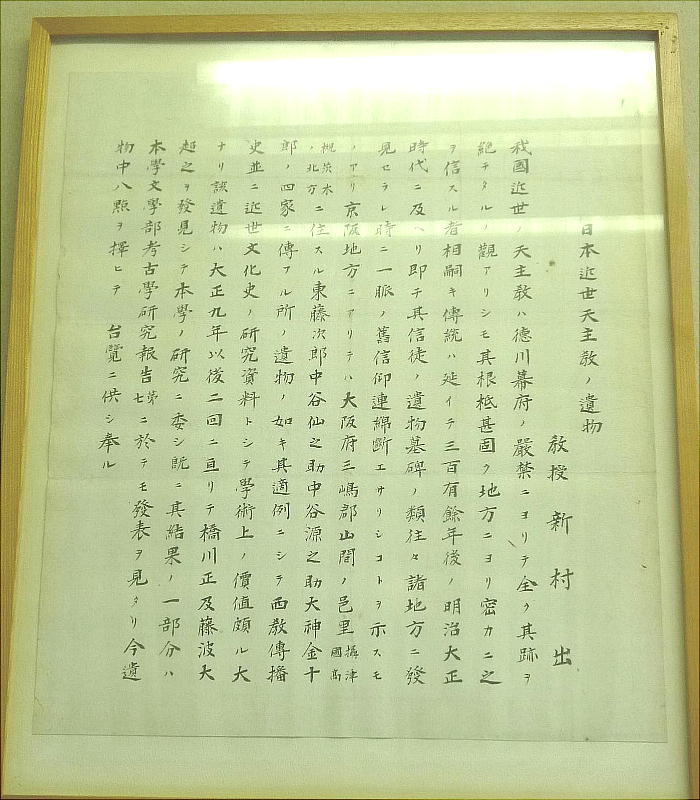 日本近世天主教ノ遺物
教授 新村出
我國近世ノ天主教ハ德川幕府ノ嚴禁ニヨリテ全ク其跡ヲ
絶チタルノ觀アリシモ其根柢甚固ク地方ニヨリ密カニ之
ヲ信スル者相嗣キ傳統ハ延イテ三百有餘年後ノ明治大正
時代ニ及ヘリ即チ其信徒ノ遺物墓碑ノ類往々諸地方ニ發
見セラレ時ニ一脈ノ舊信仰連綿斷エサリシコトヲ示スモ
ノアリ京阪地方ニアリテハ大阪府三嶋郡山間ノ邑里攝津國高
槻茨木ノ北方ニ住スル東藤次郎中谷仙之助中谷源之助大神金十
郎ノ四家ニ傳フル所ノ遺物ノ如キ其適例ニシテ西教傳播
史並ニ近世文化史ノ研究資料トシテ學術上ノ價值頗ル大
ナリ該遺物ハ大正九年以後二回ニ亘リテ橋川正及藤波大
超之ヲ發見シテ本學ノ研究ニ委シ既ニ其結果ノ一部分ハ
本學文學部考古學研究報告第七ニ於テモ發表ヲ見タリ今遺
物中八點ヲ擇ヒテ 台覽ニ供シ奉ル